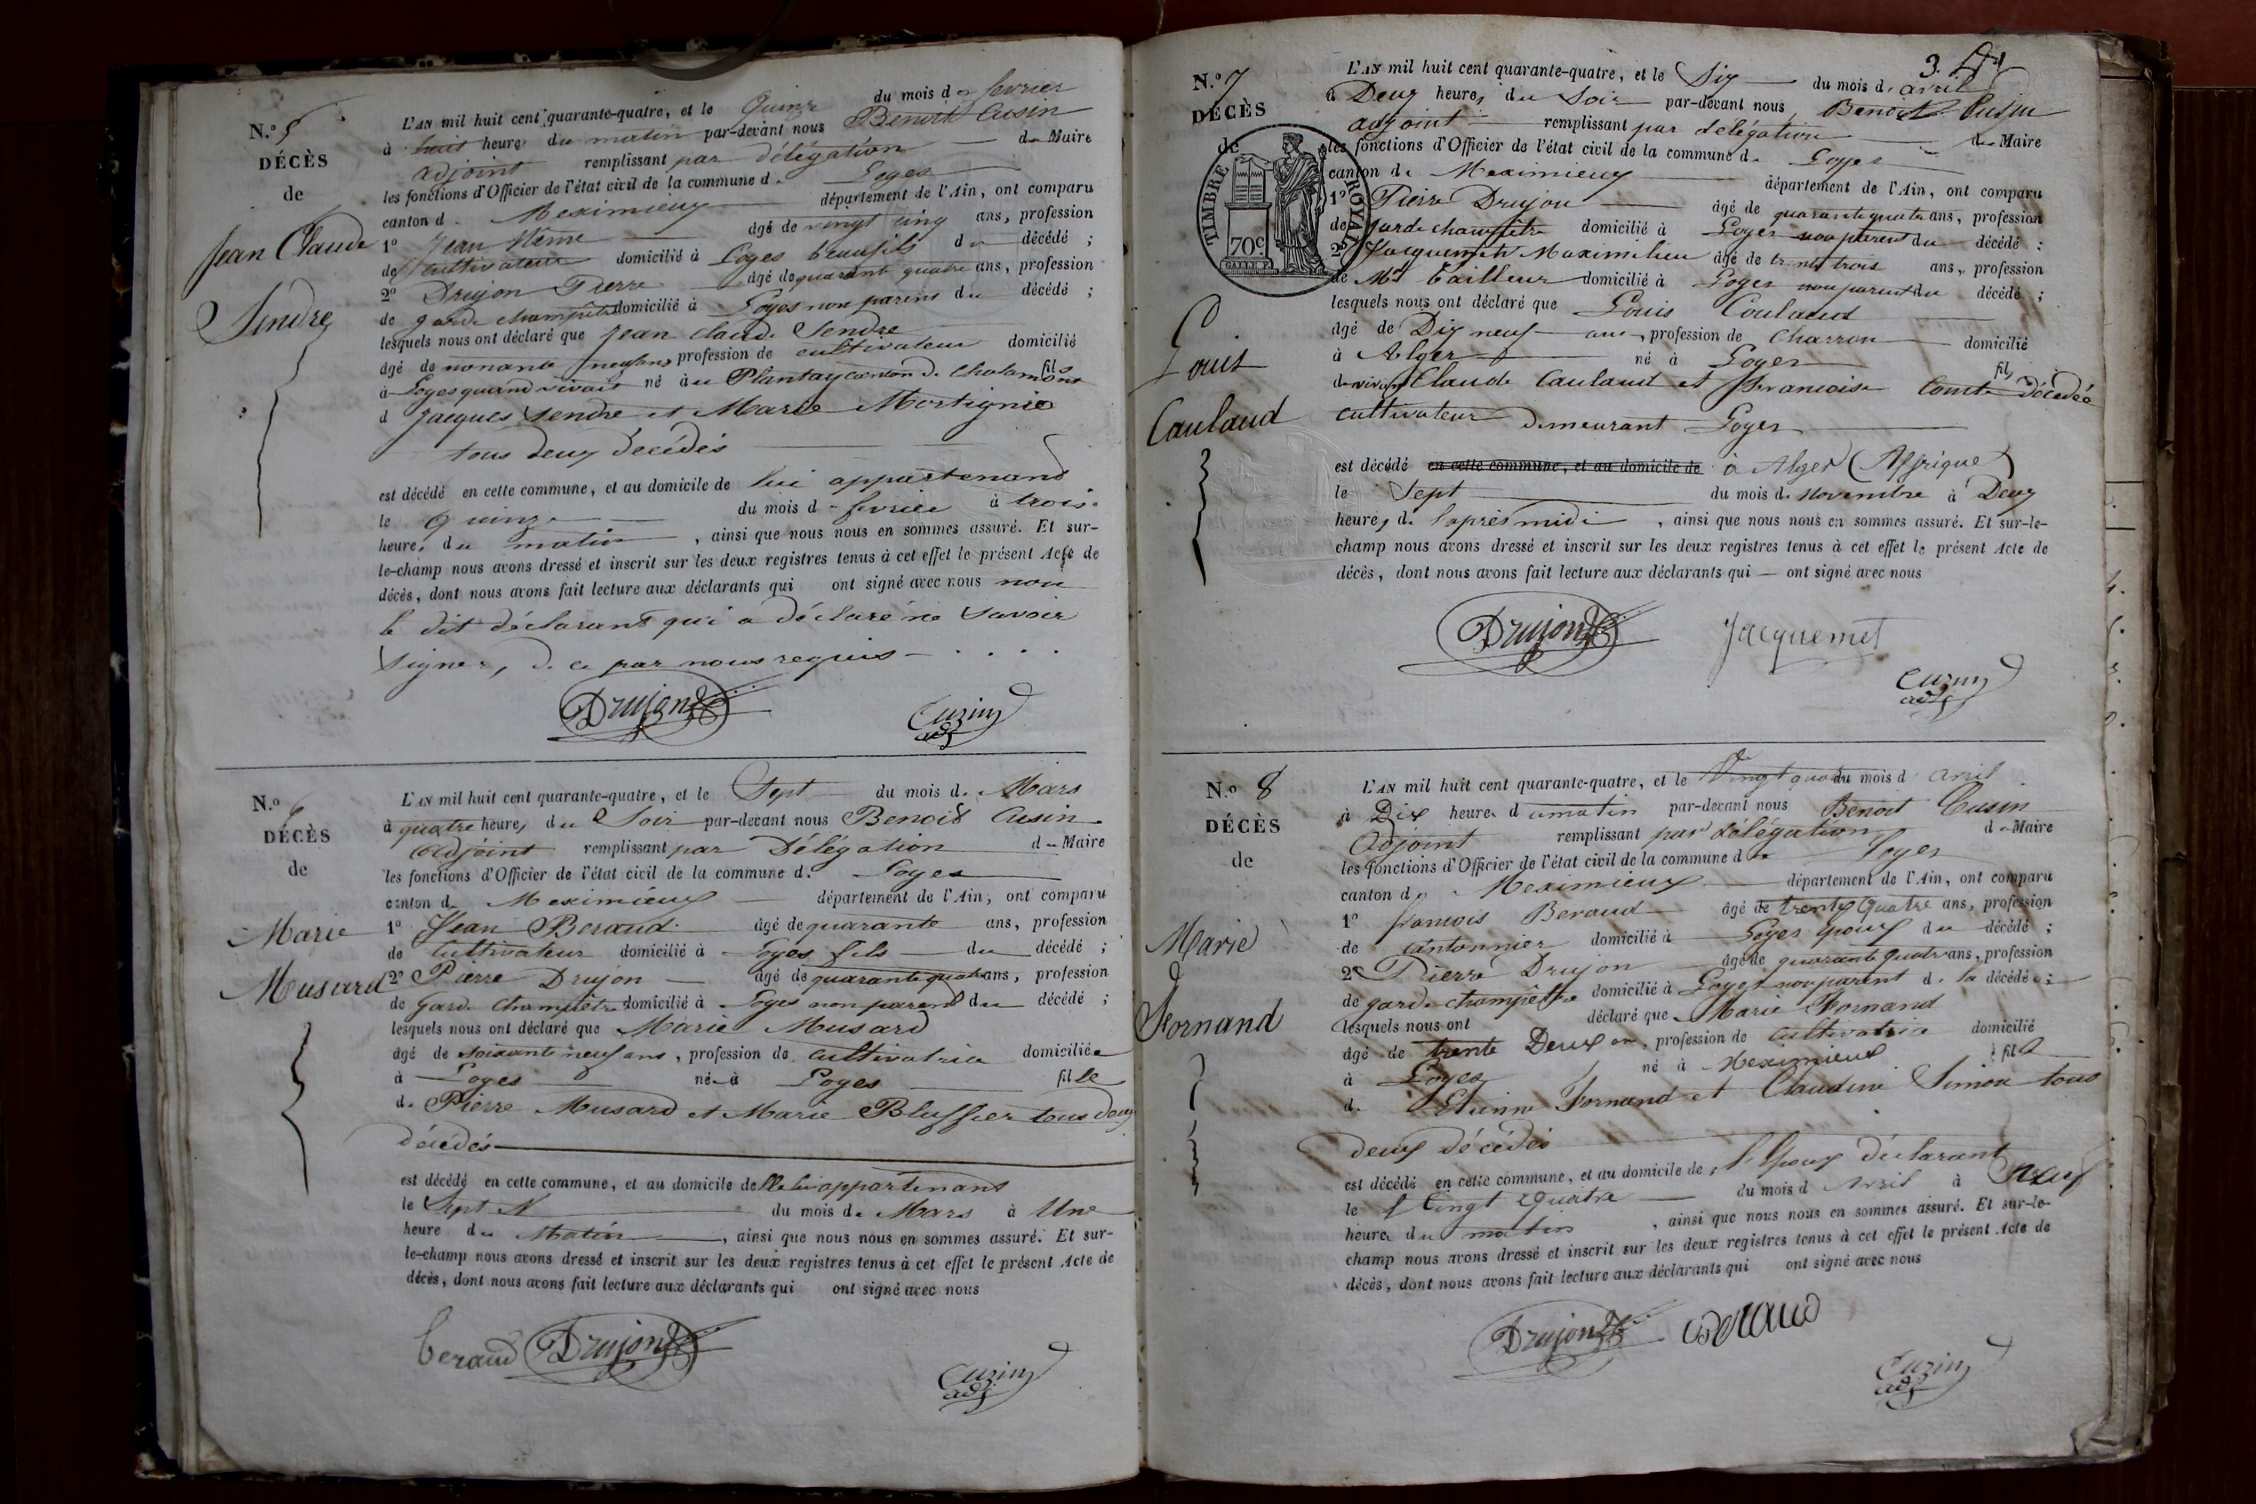 N.º 5
DÉCÈS
de
Jean Claude
Sendre
L'AN mil huit cent quarante-quatre, et le Quinze du mois de fevrier
à huit heures du matin par-devant nous Benoit Cusin
adjoint remplissant par délégation du Maire
les fonctions d'Officier de l'état civil de la commune de Loyes
canton de Meximieux département de l'Ain, ont comparu
1º Jean âgé de vingt cinq ans, profession
de cultivateur domicilié à Loyes beaufils du décédé ;
2º Drujon Pierre âgé de quarante quatre ans, profession
de garde champêtre domicilié à Loyes non parent du décédé ;
lesquels nous ont déclaré que Jean Claude Sendre
âgé de nonante neuf ans profession de cultivateur domicilié
à Loyes quand vivait né au Plantay canton de Chalamont fils
d Jacques Sendre et Marie Mortignie
tous deux décédés
est décédé en cette commune, et au domicile de lui appartenant
le quinze du mois de fevrier à trois
heures du matin, ainsi que nous nous en sommes assuré. Et sur-
le-champ nous avons dressé et inscrit sur les deux registres tenus à cet effet le présent Acte de
décès, dont nous avons fait lecture aux déclarants qui ont signé avec nous non
le dit déclarant qui a déclaré ne savoir
signer, de ce par nous requis
Drujon
Cuzin
adj
N.º 6
DÉCÈS
de
Marie
Musard
L'AN mil huit cent quarante-quatre, et le Sept du mois de Mars
à quatre heures du Soir par-devant nous Benoit Cusin
adjoint remplissant par Délégation de Maire
les fonctions d'Officier de l'état civil de la commune de Loyes
canton de Meximieux département de l'Ain, ont comparu
1º Jean Beraud âgé de quarante ans, profession
de Cultivateur domicilié à Loyes fils du décédé ;
2º Pierre Drujon âgé de quarante quatre ans, profession
de Garde Champêtre domicilié à Loyes non parent du décédé ;
lesquels nous ont déclaré que Marie Musard
âgé de soixante neuf ans, profession de cultivatrice domiciliée
à Loyes née à Loyes fille
de Pierre Musard et Marie Bluffier tous deux
décédés
est décédé en cette commune, et au domicile de elle lui appartenant
le Sept du mois de Mars à Une
heure du Matin, ainsi que nous nous en sommes assuré. Et sur-
le-champ nous avons dressé et inscrit sur les deux registres tenus à cet effet le présent Acte de
décès, dont nous avons fait lecture aux déclarants qui ont signé avec nous
beraud Drujon
Cuzin
adj
3.
N.º 7
DÉCÈS
de
TIMBRE ROYAL
70c
Louis
Caulaud
L'AN mil huit cent quarante-quatre, et le Six du mois d'avril
à Deux heures du Soir par-devant nous Benoit Cusin
adjoint remplissant par délégation de Maire
les fonctions d'Officier de l'état civil de la commune de Loyes
canton de Meximieux département de l'Ain, ont comparu
1º Pierre Drujon âgé de quarante quatre ans, profession
de garde champêtre domicilié à Loyes non parent du décédé ;
2º Jacquemet Maximilien âgé de trente trois ans, profession
de Md tailleur domicilié à Loyes non parent du décédé ;
lesquels nous ont déclaré que Louis Coulaud
âgé de Dix neuf ans, profession de Charron domicilié
à Alger né à Loyes fils
de vivant Claude Caulaud et Francoise Comte décédée
cultivateur demeurant Loyes
est décédé en cette commune, et au domicile de à Alger (Affrique)
le Sept du mois de Novembre à Deux
heures de l'après midi, ainsi que nous nous en sommes assuré. Et sur-le-
champ nous avons dressé et inscrit sur les deux registres tenus à cet effet le présent Acte de
décès, dont nous avons fait lecture aux déclarants qui — ont signé avec nous
Drujon Jacquemet
Cuzin
adj
N.º 8
DÉCÈS
de
Marie
Fornand
L'AN mil huit cent quarante-quatre, et le Vingt quatre du mois d'avril
à Dix heures du matin par-devant nous Benoit Cusin
Adjoint remplissant par délégation de Maire
les fonctions d'Officier de l'état civil de la commune de Loyes
canton de Meximieux département de l'Ain, ont comparu
1º francois Beraud âgé de trente quatre ans, profession
de cantonnier domicilié à Loyes Epoux du décédé ;
2º Pierre Drujon âgé de quarante quatre ans, profession
de garde champêtre domicilié à Loyes non parent de la décédée ;
lesquels nous ont déclaré que Marie Fornand
âgé de trente Deux an, profession de cultivatrice domicilié
à Loyes né à Meximieux fille
d. Etienne Fornand et Claudine Simon tous
deux décédés
est décédé en cette commune, et au domicile de l'Epoux déclarant
le Vingt Quatre du mois d Avril à Neuf
heures du matin, ainsi que nous nous en sommes assuré. Et sur-le-
champ nous avons dressé et inscrit sur les deux registres tenus à cet effet le présent Acte de
décès, dont nous avons fait lecture aux déclarants qui ont signé avec nous
Drujon Beraud
Cuzin
adj